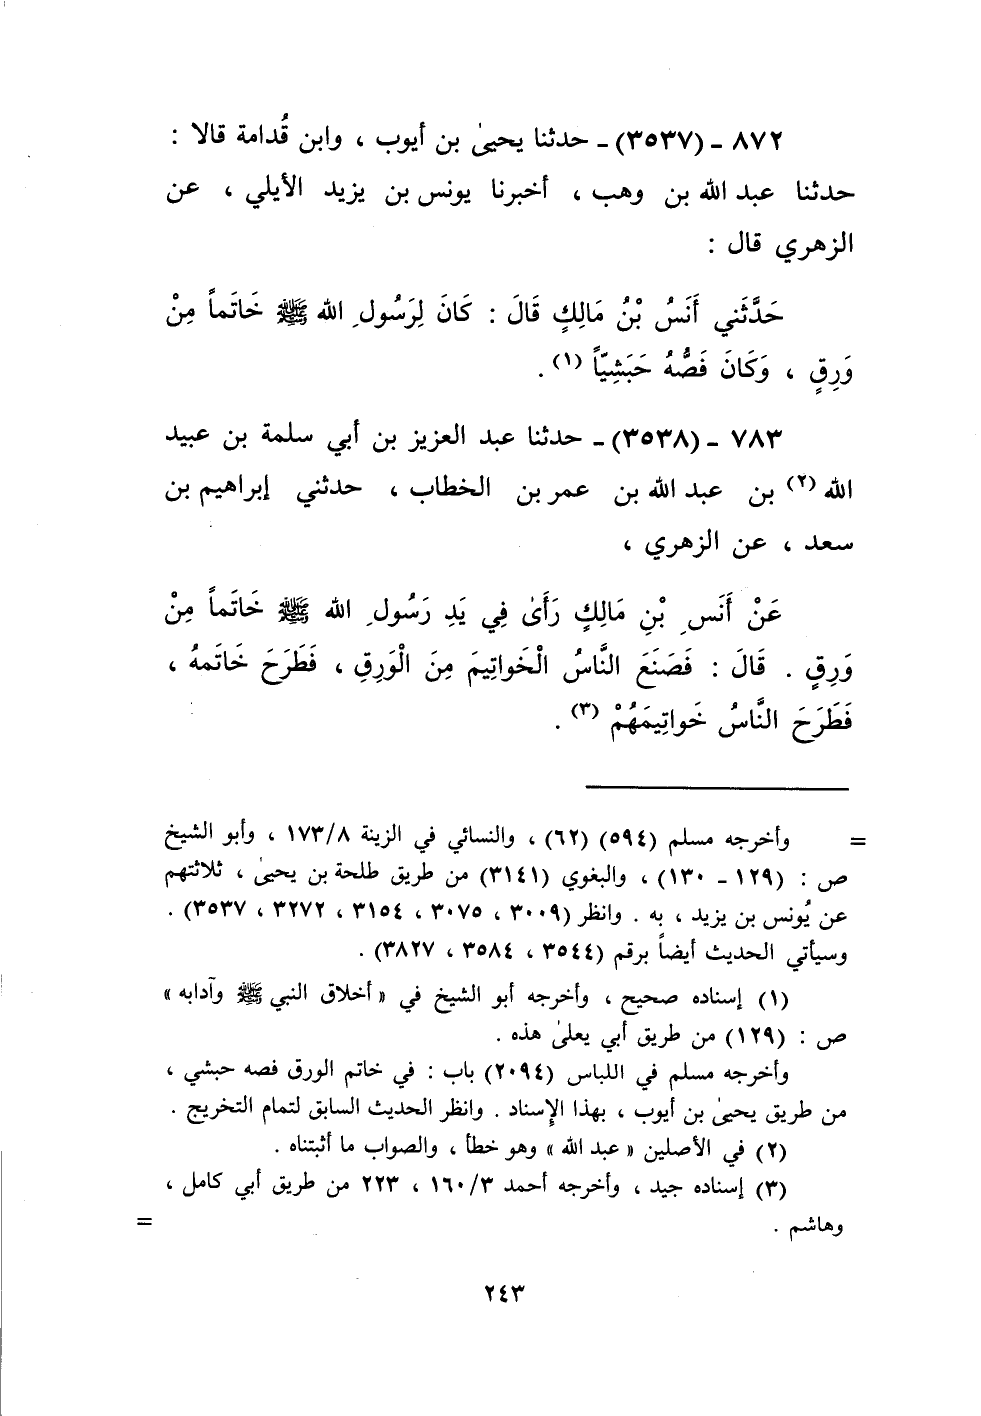 ٨٧٢ ـ (٣٥٣٧) ـ حدثنا يحيىٰ بن أيوب ، وابن قُدامة قالا :
حدثنا عبد الله بن وهب ، أخبرنا يونس بن يزيد الأيلي ، عن
الزهري قال :
حَدَّثَني أَنَسُ بْنُ مَالِكٍ قَالَ : كَانَ لِرَسُولِ الله ﷺ خَاتَماً مِنْ
وَرِقٍ ، وَكَانَ فَصُّهُ حَبَشِيّاً (١) .
٧٨٣ ـ (٣٥٣٨) ـ حدثنا عبد العزيز بن أبي سلمة بن عبيد
الله (٢) بن عبد الله بن عمر بن الخطاب ، حدثني إبراهيم بن
سعد ، عن الزهري ،
عَنْ أَنَسِ بْنِ مَالِكٍ رَأَىٰ فِي يَدِ رَسُولِ الله ﷺ خَاتَماً مِنْ
وَرِقٍ . قَالَ : فَصَنَعَ النَّاسُ الْخَواتِيمَ مِنَ الْوَرِقِ ، فَطَرَحَ خَاتَمهُ ،
فَطَرَحَ النَّاسُ خَواتِيمَهُمْ (٣) .
= وأخرجه مسلم (٥٩٤) (٦٢) ، والنسائي في الزينة ١٧٣/٨ ، وأبو الشيخ
ص : (١٢٩ ـ ١٣٠) ، والبغوي (٣١٤١) من طريق طلحة بن يحيىٰ ، ثلاثتهم
عن يُونس بن يزيد ، به . وانظر (٣٠٠٩ ، ٣٠٧٥ ، ٣١٥٤ ، ٣٢٧٢ ، ٣٥٣٧) .
وسيأتي الحديث أيضاً برقم (٣٥٤٤ ، ٣٥٨٤ ، ٣٨٢٧) .
(١) إسناده صحيح ، وأخرجه أبو الشيخ في « أخلاق النبي ﷺ وآدابه »
ص : (١٢٩) من طريق أبي يعلىٰ هذه .
وأخرجه مسلم في اللباس (٢٠٩٤) باب : في خاتم الورق فصه حبشي ،
من طريق يحيىٰ بن أيوب ، بهذا الإسناد . وانظر الحديث السابق لتمام التخريج .
(٢) في الأصلين « عبد الله » وهو خطأ ، والصواب ما أثبتناه .
(٣) إسناده جيد ، وأخرجه أحمد ١٦٠/٣ ، ٢٢٣ من طريق أبي كامل ،
وهاشم . =
٢٤٣